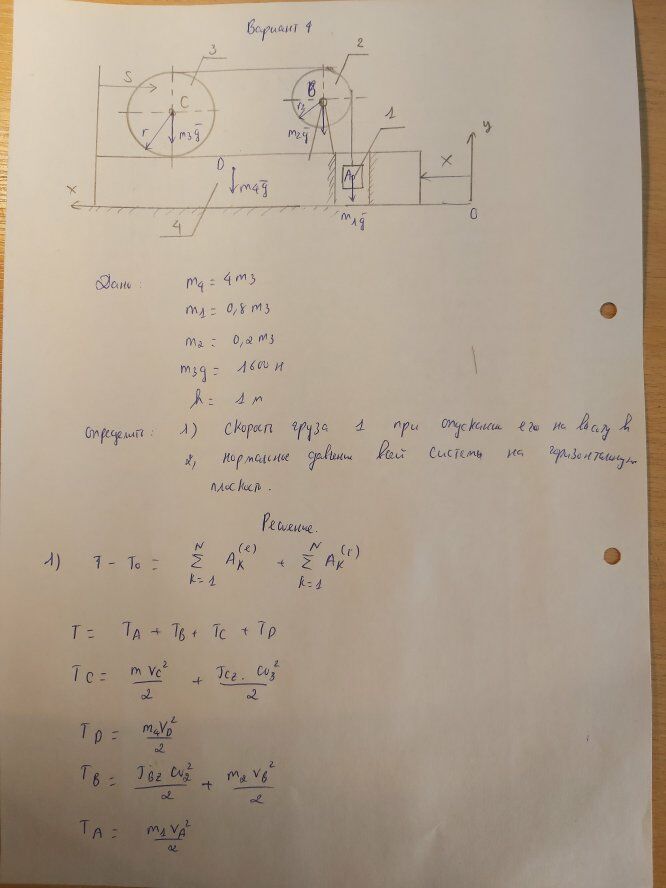 Вариант 9
S
3
2
C
B
r
r2
m₃g̅
m₂g̅
1
A
D
m₄g̅
X
X
y
4
m₁g̅
O
Дано: m₄ = 4m₃
m₁ = 0,8m₃
m₂ = 0,2m₃
m₃g = 1600 Н
h = 1 м
Определить: 1) скорость груза 1 при опускании его на высоту h
2) нормальное давление всей системы на горизонтальную
плоскость.
Решение.
1) T - T₀ = Σ A_K^(e) + Σ A_K^(i)
N K=1 N K=1
T = T_A + T_B + T_C + T_D
T_C = m V_C²/2 + J_Cz · ω₃²/2
T_D = m₄V_D²/2
T_B = J_Bz ω₂²/2 + m₂ V_B²/2
T_A = m₁ V_A²/2